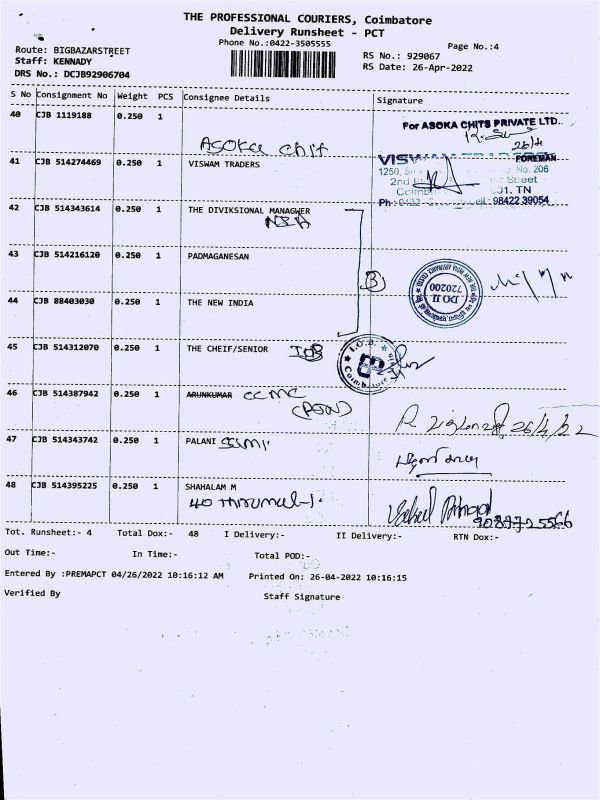 THE PROFESSIONAL COURIERS, Coimbatore
Delivery Runsheet - PCT
Phone No.:0422-3505555
Page No.:4
Route: BIGBAZARSTREET
Staff: KENNADY
DRS No.: DCJB92906704
RS No.: 929067
RS Date: 26-Apr-2022
S No Consignment No Weight PCS Consignee Details Signature
40 CJB 1119188 0.250 1
Asoka chit
For ASOKA CHITS PRIVATE LTD.
26/4
FOREMAN
41 CJB 514274469 0.250 1 VISWAM TRADERS
VISWAM TRADERS
1250, No. 206
2nd Street
TN
98422 39054
42 CJB 514343614 0.250 1 THE DIVIKSIONAL MANAGWER
NIA
43 CJB 514216120 0.250 1 PADMAGANESAN
3
DO II
720200
44 CJB 88403030 0.250 1 THE NEW INDIA
45 CJB 514312070 0.250 1 THE CHEIF/SENIOR IOB
I.O.B.
Coimbatore
46 CJB 514387942 0.250 1 ARUNKUMAR CCMC
26/4/22
47 CJB 514343742 0.250 1 PALANI
48 CJB 514395225 0.250 1 SHAHALAM M
40
Tot. Runsheet:- 4 Total Dox:- 48 I Delivery:- II Delivery:- RTN Dox:-
Out Time:- In Time:- Total POD:-
Entered By :PREMAPCT 04/26/2022 10:16:12 AM Printed On: 26-04-2022 10:16:15
Verified By Staff Signature